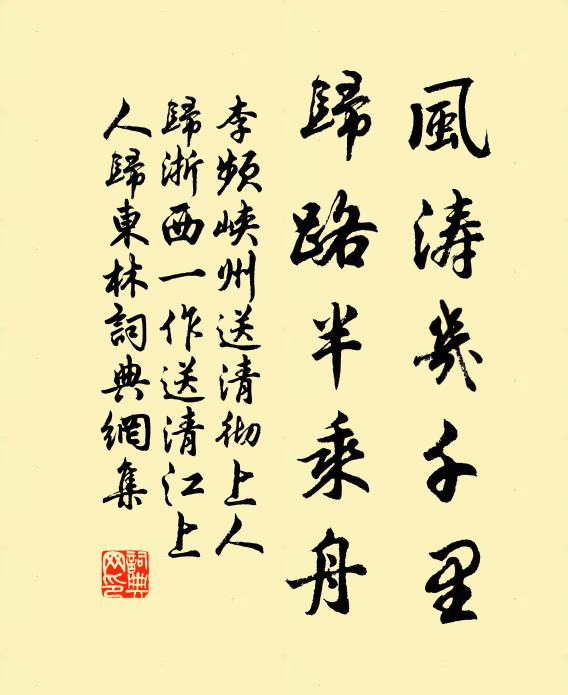 風涛幾千里
歸路半乘舟
李頻峽州送清彻上人
歸浙西一作送清江上
人歸東林詞典網集
詞典网印